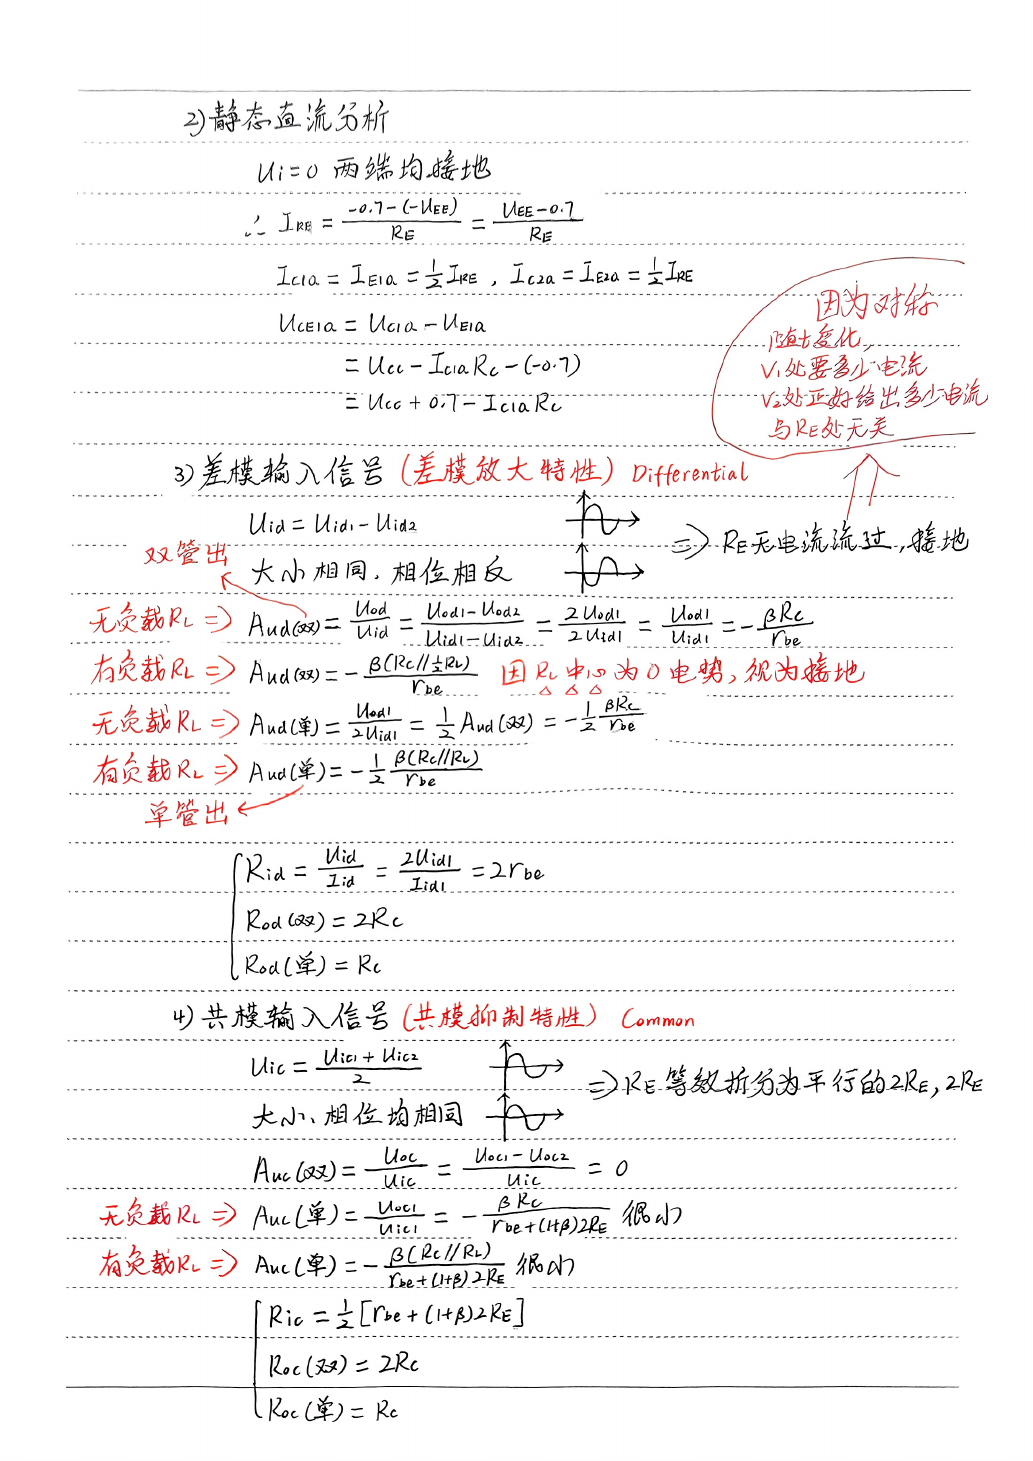 2) 静态直流分析
Ui=0 两端均接地
∴ IRE = (-0.7-(-UEE))/RE = (UEE-0.7)/RE
IC1Q = IE1Q = ½IRE , IC2Q = IE2Q = ½IRE
UCE1Q = UC1Q - UE1Q
= UCC - IC1Q RC - (-0.7)
= UCC + 0.7 - IC1Q RC
因为对称
随t变化,
V1处要多少电流
V2处正好给出多少电流
与RE处无关
3) 差模输入信号 (差模放大特性) Differential
Uid = Uid1 - Uid2
⇒ RE无电流流过,接地
双管出
大小相同、相位相反
无负载RL ⇒ Aud(双) = Uod/Uid = (Uod1-Uod2)/(Uid1-Uid2) = 2Uod1/2Uid1 = Uod1/Uid1 = -βRC/rbe
有负载RL ⇒ Aud(双) = -β(RC//½RL)/rbe 因RL中心为0电势,视为接地
无负载RL ⇒ Aud(单) = Uod1/2Uid1 = ½Aud(双) = -½ βRC/rbe
有负载RL ⇒ Aud(单) = -½ β(RC//RL)/rbe
单管出
Rid = Uid/Iid = 2Uid1/Iid1 = 2rbe
Rod(双) = 2RC
Rod(单) = RC
4) 共模输入信号 (共模抑制特性) Common
Uic = (Uic1+Uic2)/2
⇒ RE等效拆分为平行的2RE, 2RE
大小、相位均相同
Auc(双) = Uoc/Uic = (Uoc1-Uoc2)/Uic = 0
无负载RL ⇒ Auc(单) = Uoc1/Uic1 = -βRC/(rbe+(1+β)2RE) 很小
有负载RL ⇒ Auc(单) = -β(RC//RL)/(rbe+(1+β)2RE) 很小
Ric = ½[rbe+(1+β)2RE]
Roc(双) = 2RC
Roc(单) = RC